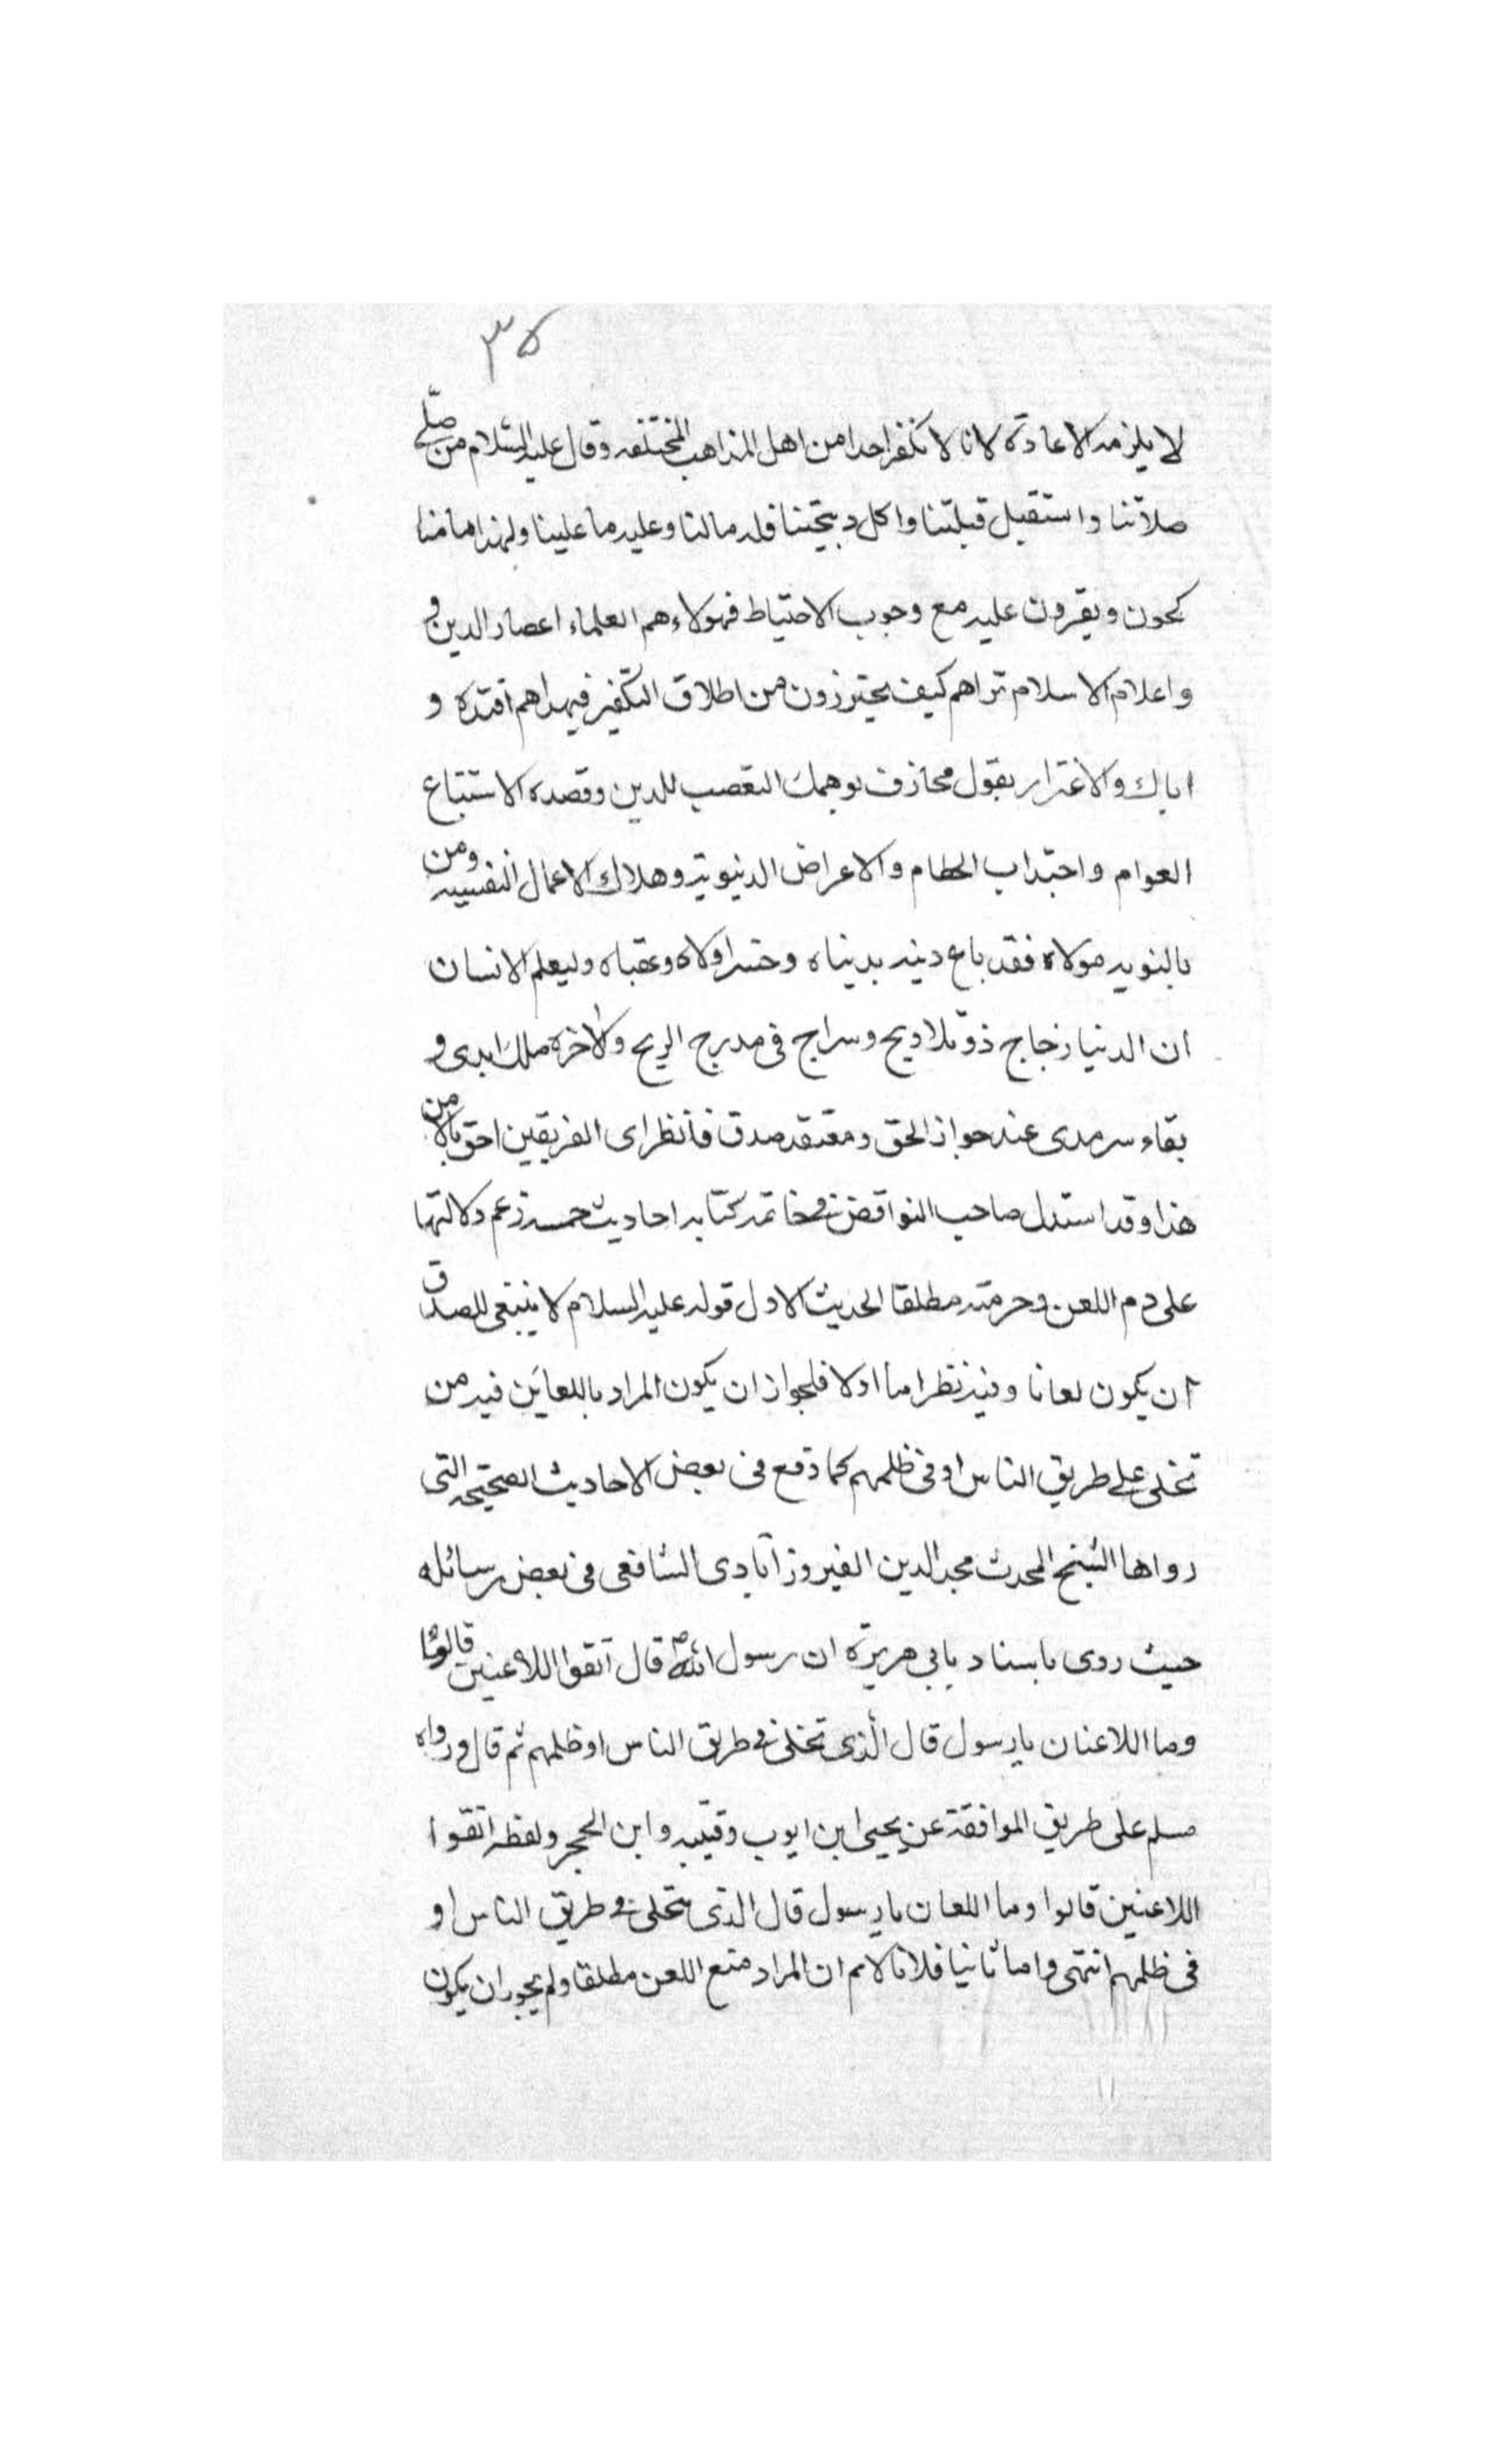 ٣٥
لا يلزمه الاعادة لانا لا نكفر احدا من اهل المذاهب المختلفه وقال عليه السلام من صلّى
صلاتنا واستقبل قبلتنا واكل ذبيحتنا فله مالنا وعليه ما علينا ولهذا امامنا
كحون ويقرون عليه مع وجوب الاحتياط فهولاء هم العلماء اعصار الدين و
واعلام الاسلام تراهم كيف يحترزون من اطلاق التكفير فبهداهم اقتده و
اياك والاغترار بقول مجازف يوهمك التعصب للدين وقصده الاستتباع
العوام واجتذاب الحطام والاعراض الدنيوية وهلاك الاعمال النفسيه ومن
دينه بدنياه وخسر اولاه وعقباه وليعلم الانسان
ان الدنيا زجاج ذو تلاديح وسراج فى مدرج الريح والاخرة ملك ابدى و
بقاء سرمدى عند جواز الحق ومقعد صدق فانظر اى الفريقين احق بالامن
هذا وقد استدل صاحب النواقض فى خاتمة كتابه احاديث خمسة زعم دلالتها
على ذم اللعن وحرمته مطلقا الحديث الاول قوله عليه السلام لا ينبغى للصدق
ان يكون لعانا وفيه نظر اما اولا فلجواز ان يكون المراد باللعانين فيه من
تخلى على طريق الناس او فى ظلهم كما وقع فى بعض الاحاديث الصحيحه التى
رواها الشيخ المحدث مجد الدين الفيروزآبادى الشافعى فى بعض رسائله
حيث روى باسناد يابي هريرة ان رسول الله ص قال اتقوا اللاعنين قالوا
وما اللاعنان يا رسول قال الّذى تخلى فى طريق الناس او ظلهم ثم قال ورواه
مسلم على طريق الموافقة عن يحيى ابن ايوب وقتيبه وابن الحجر ولفظه اتقوا
اللاعنين قالوا وما اللعان يا رسول قال الذى يتخلى فى طريق الناس او
فى ظلهم انتهى واما ثانيا فلانا لا نم ان المراد منع اللعن مطلقا ولم يجوز ان يكون